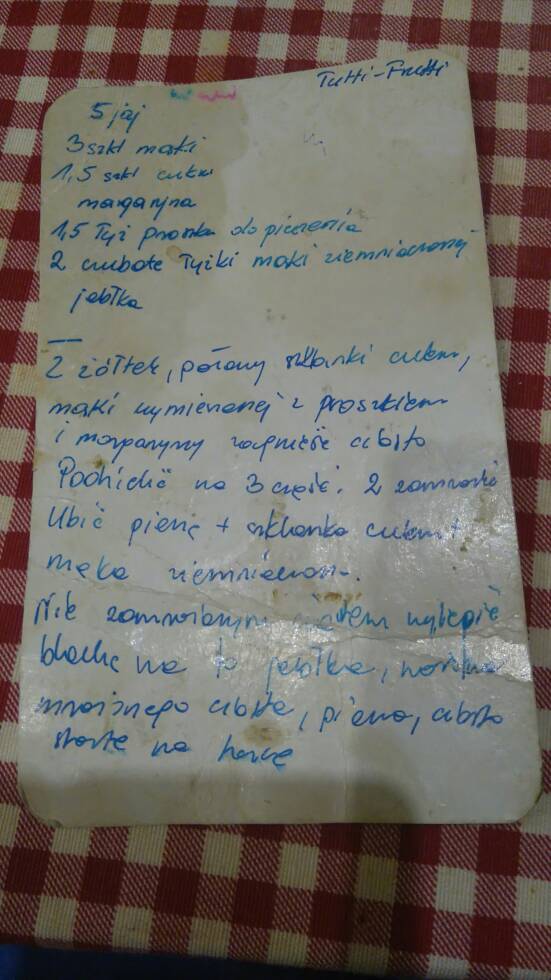 Tutti-Frutti
5 jaj
3 szkl mąki
1,5 szkl cukru
margaryna
1,5 łyż proszku do pieczenia
2 czubate łyżki mąki ziemniaczanej
jabłka
Z żółtek, połowy szklanki cukru,
mąki wymieszanej z proszkiem
i margaryny zagnieść ciasto
Podzielić na 3 części. 2 zamrozić
Ubić pianę + szklanka cukru +
mąka ziemniaczan.
Nie zamrożonym ciastem wylepić
blachę na to jabłka,
mrożonego ciasta, piana, ciasto
starte na tarce